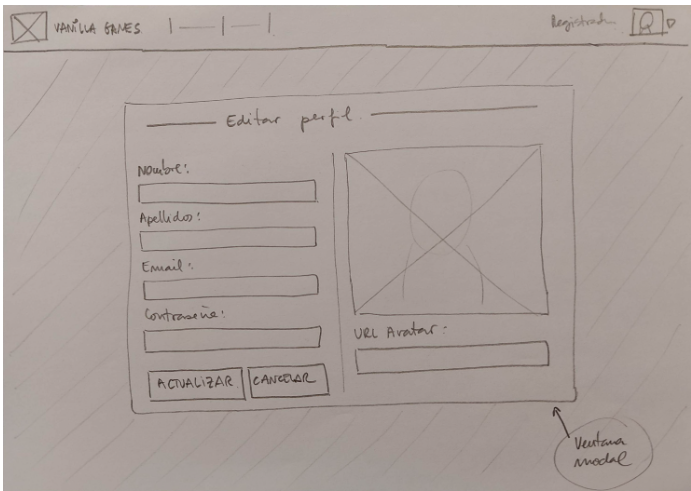 VANILLA GAMES
Registrado
Editar perfil
Nombre:
Apellidos:
Email:
Contraseña:
ACTUALIZAR
CANCELAR
URL Avatar:
Ventana
modal